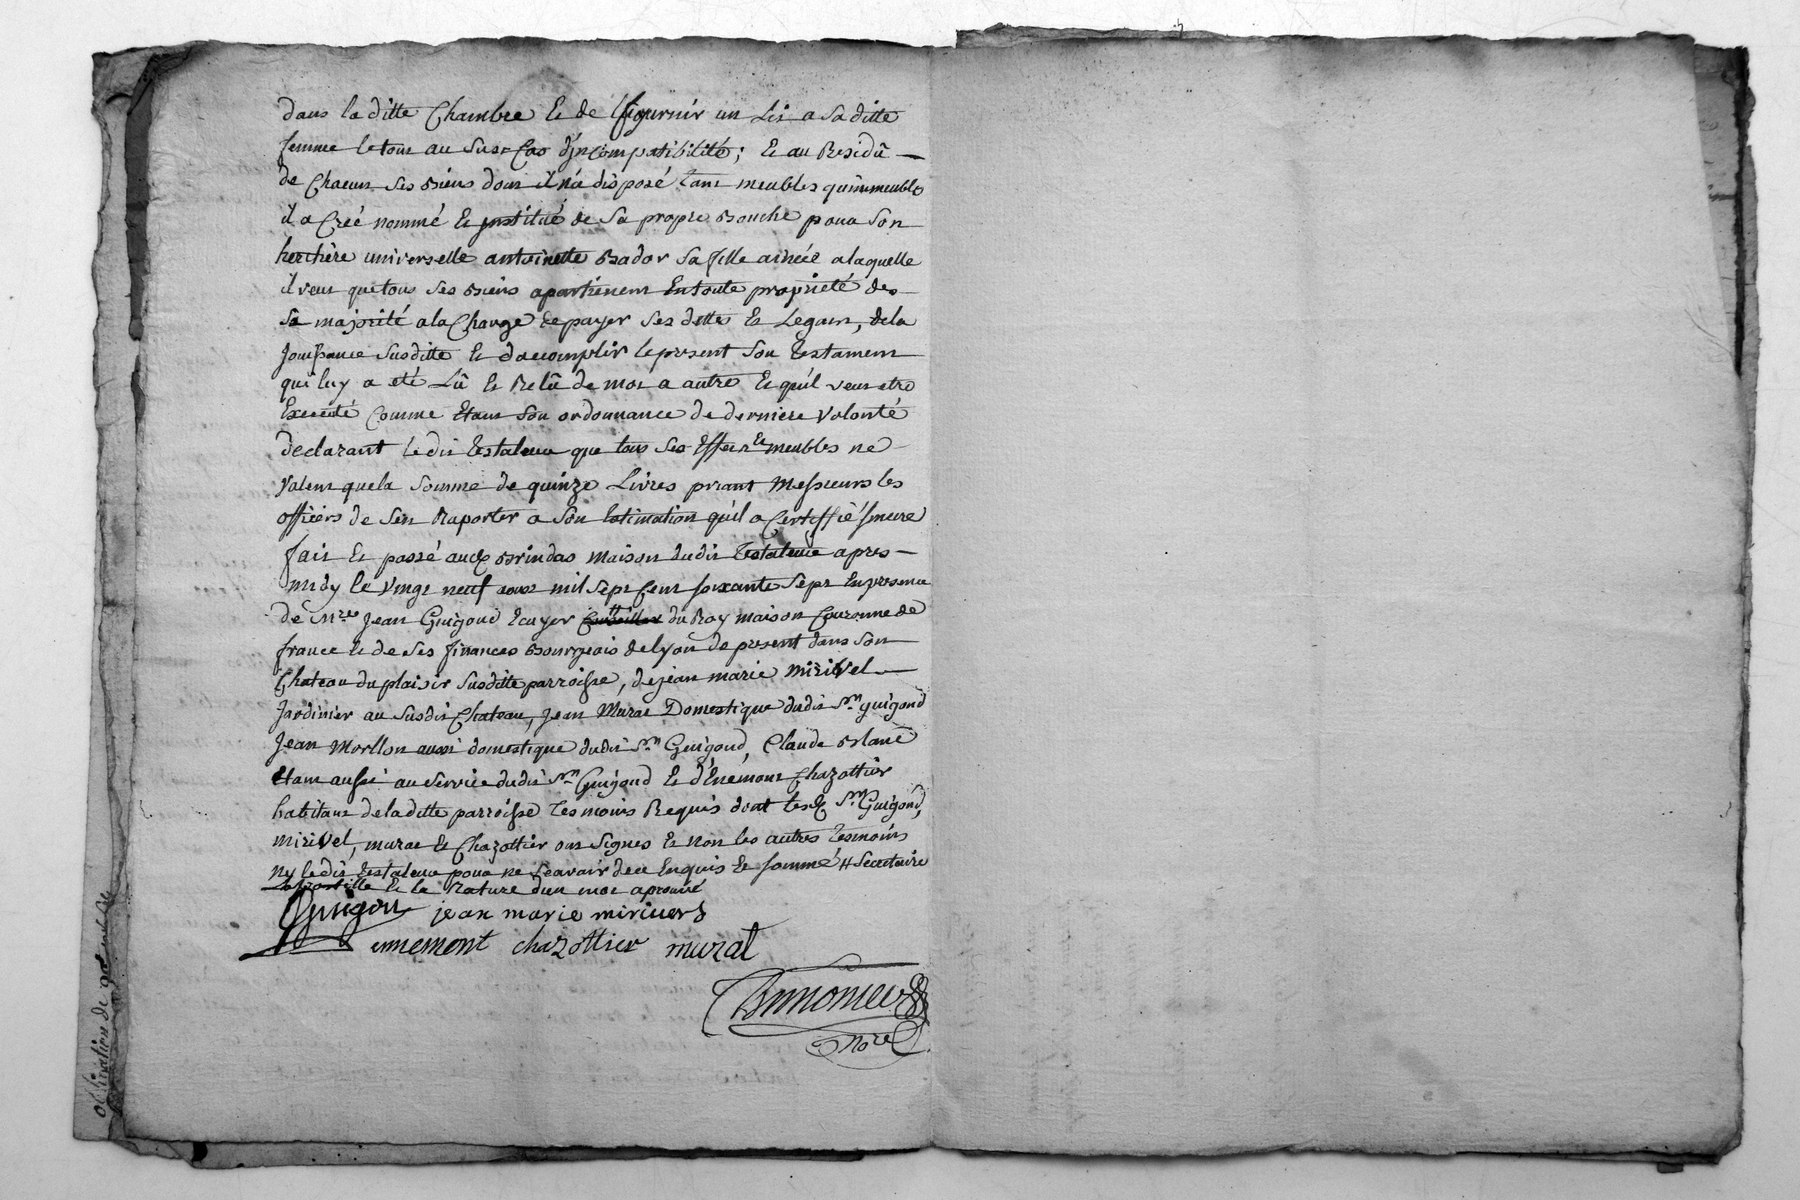 dans la ditte Chambre Et de fournir un Lit a Sa ditte
femme le tout au Susd Cas d'jncompatibilité ; Et au Residû
de Chacun Ses Biens dont il n'a disposé tant meubles qu'immeubles
il a Créé nommé Et jnstitué de Sa propre Bouche pour Son
heritière universelle antoinette Bador Sa fille ainée a laquelle
il veut que tous Ses Biens apartienent En toute proprieté des
Sa majorité a la Charge de payer Ses dettes Et Legats, de la
Jouissance Susditte Et dacomplir le present Son Testament
qui luy a eté Lû Et Relû de mot a autre Et qu'il veut etre
Executé Comme Etant Son ordonnance de derniere Volonté
declarant le dit Testateur que tous Ses Effets Et meubles ne
Valent que la Somme de quinze Livres priant Messieurs les
officiers de S'en Raporter a Son Estimation qu'il a Certiffié Sincere
fait Et passé aux Brindas maison dudit Testateur apres
midy le Vingt neuf aout mil Sept Cent soixante Sept En presence
de Mre Jean Guigoud Ecuyer du Roy maison Couronne de
france Et de Ses finances Bourgeois de Lyon de present dans Son
Chateau du plaisir Susditte parroisse, de jean marie Mirivel
Jardinier au Susdit Chateau, Jean Murat Domestique dudit Sr guigoud
Jean Morllon aussi domestique dudit Sr Guigoud, Claude Blanc
Etant aussi au Service dudit Sr Guigoud Et d'Enemont Chazottier
habitant de la ditte parroisse Temoins Requis dont lesd Sr Guigoud,
Mirivel, murat Et Chazottier ont Signés Et non les autres Temoins
Ny le dit Testateur pour ne Scavoir de ce Enquis Et sommé # Secretaire
Et la Rature d'un mot aprouvé
Guigou jean marie mirivers
ennemont chazottier murat
Nore
obligation de